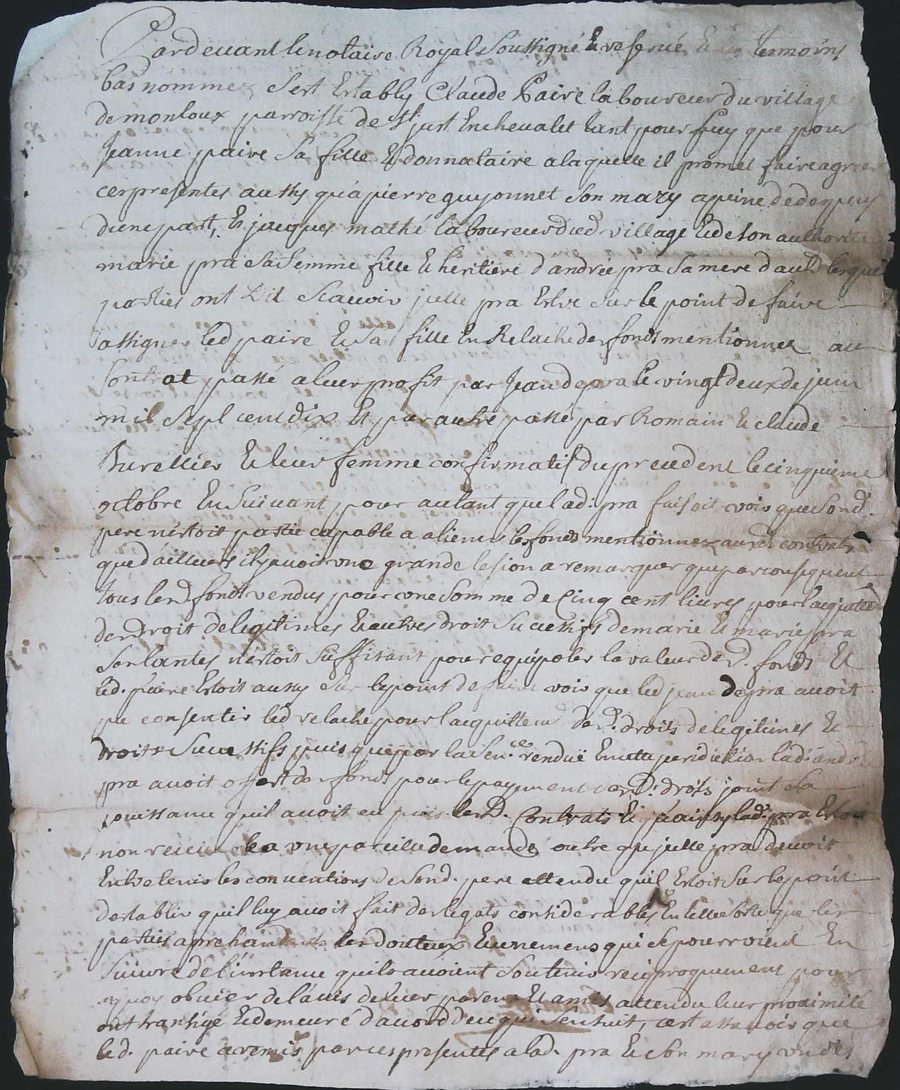 Pardevant le notaire Royal Soussigné & reservé & les temoins
bas nommez s'est Estably Claude Paire laboureur du village
de monloux parroisse de St just En chevalet tant pour luy que pour
Jeanne paire sa fille & donnataire a laquelle il promet faire agreer
ces presentes aussy qu'a pierre guyonnet son mary a peine de despens
d'une part, Et jacques mathé laboureur dud. village & de son authorité
marie pra sa femme fille & heritiere d'andrée pra sa mere d'au.
parties ont dit Scavoir jelle pra Estre sur le point de faire
assigner led paire & sa fille En Relache des fonds mentionnez au
Contrat passé a leur profit par Jean depra le vingt deux de juin
mil sept cent dix & par autre passé par Romain & claude
Burellier & leur femme confirmatif du precedent le cinquieme
octobre En suivant, pour autant que lad. pra faisoit voir que sond.
pere n'estoit partie capable a aliener les fonds mentionnez auxd. contrats
que d'ailleurs il y avoit une grande lesion a remarquer que par consequent
tous lesd. fonds vendus pour une somme de Cinq cent livres pour l'acquittement
des Droit de legitimes & autres droit successifs de marie & marie pra
ses tantes n'estoit suffisant pour equipoler la valeur desd. fonds &
led. paire Estoit aussy sur le point de faire voir que led jean depra avoit
pu consentir led relache pour l'acquittement desd. droits de legitimes &
droits successifs puis que par la Sence rendue En cette juridiction lad. andrée
pra avoit offert des fonds pour le payement desd. droits joint a la
jouissance qu'il avoit eu puis lesd. Contrats & qu'ainsy lad. pra Estoit
non recevable a une pareille demande outre que jelle pra devoit
Entretenir les conventions de sond. pere attendu qu'il Estoit sur le point
d'establir qu'il luy avoit fait des legats considerables En telle sorte que les
parties aprehendant les douteux Evenements qui se pourroient En
suivre de l'instance qu'ils avoient soutenir reciproquement pour
a quoy obvier de l'avis de leur parens & amis attendu leur proximité
ont transigé & demeuré d'accord de ce qui s'ensuit, c'est assavoir que
led. paire a remis par ces presentes a lad. pra & son mary un des